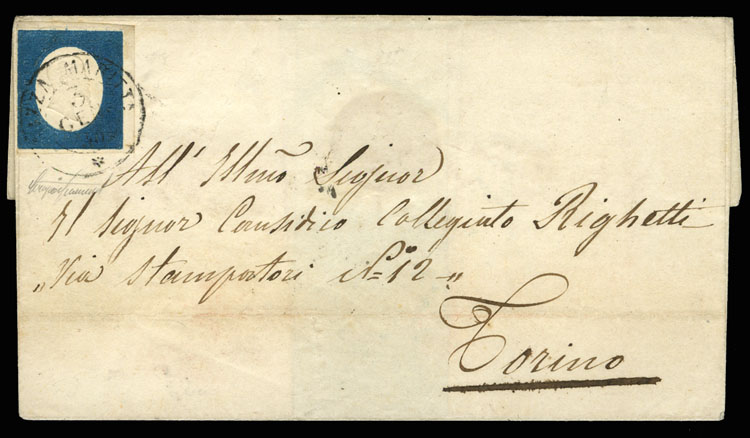 All' Illmo Signor
Il Signor Causidico Collegiato Righetti
„Via Stampatori No 12 „
Torino